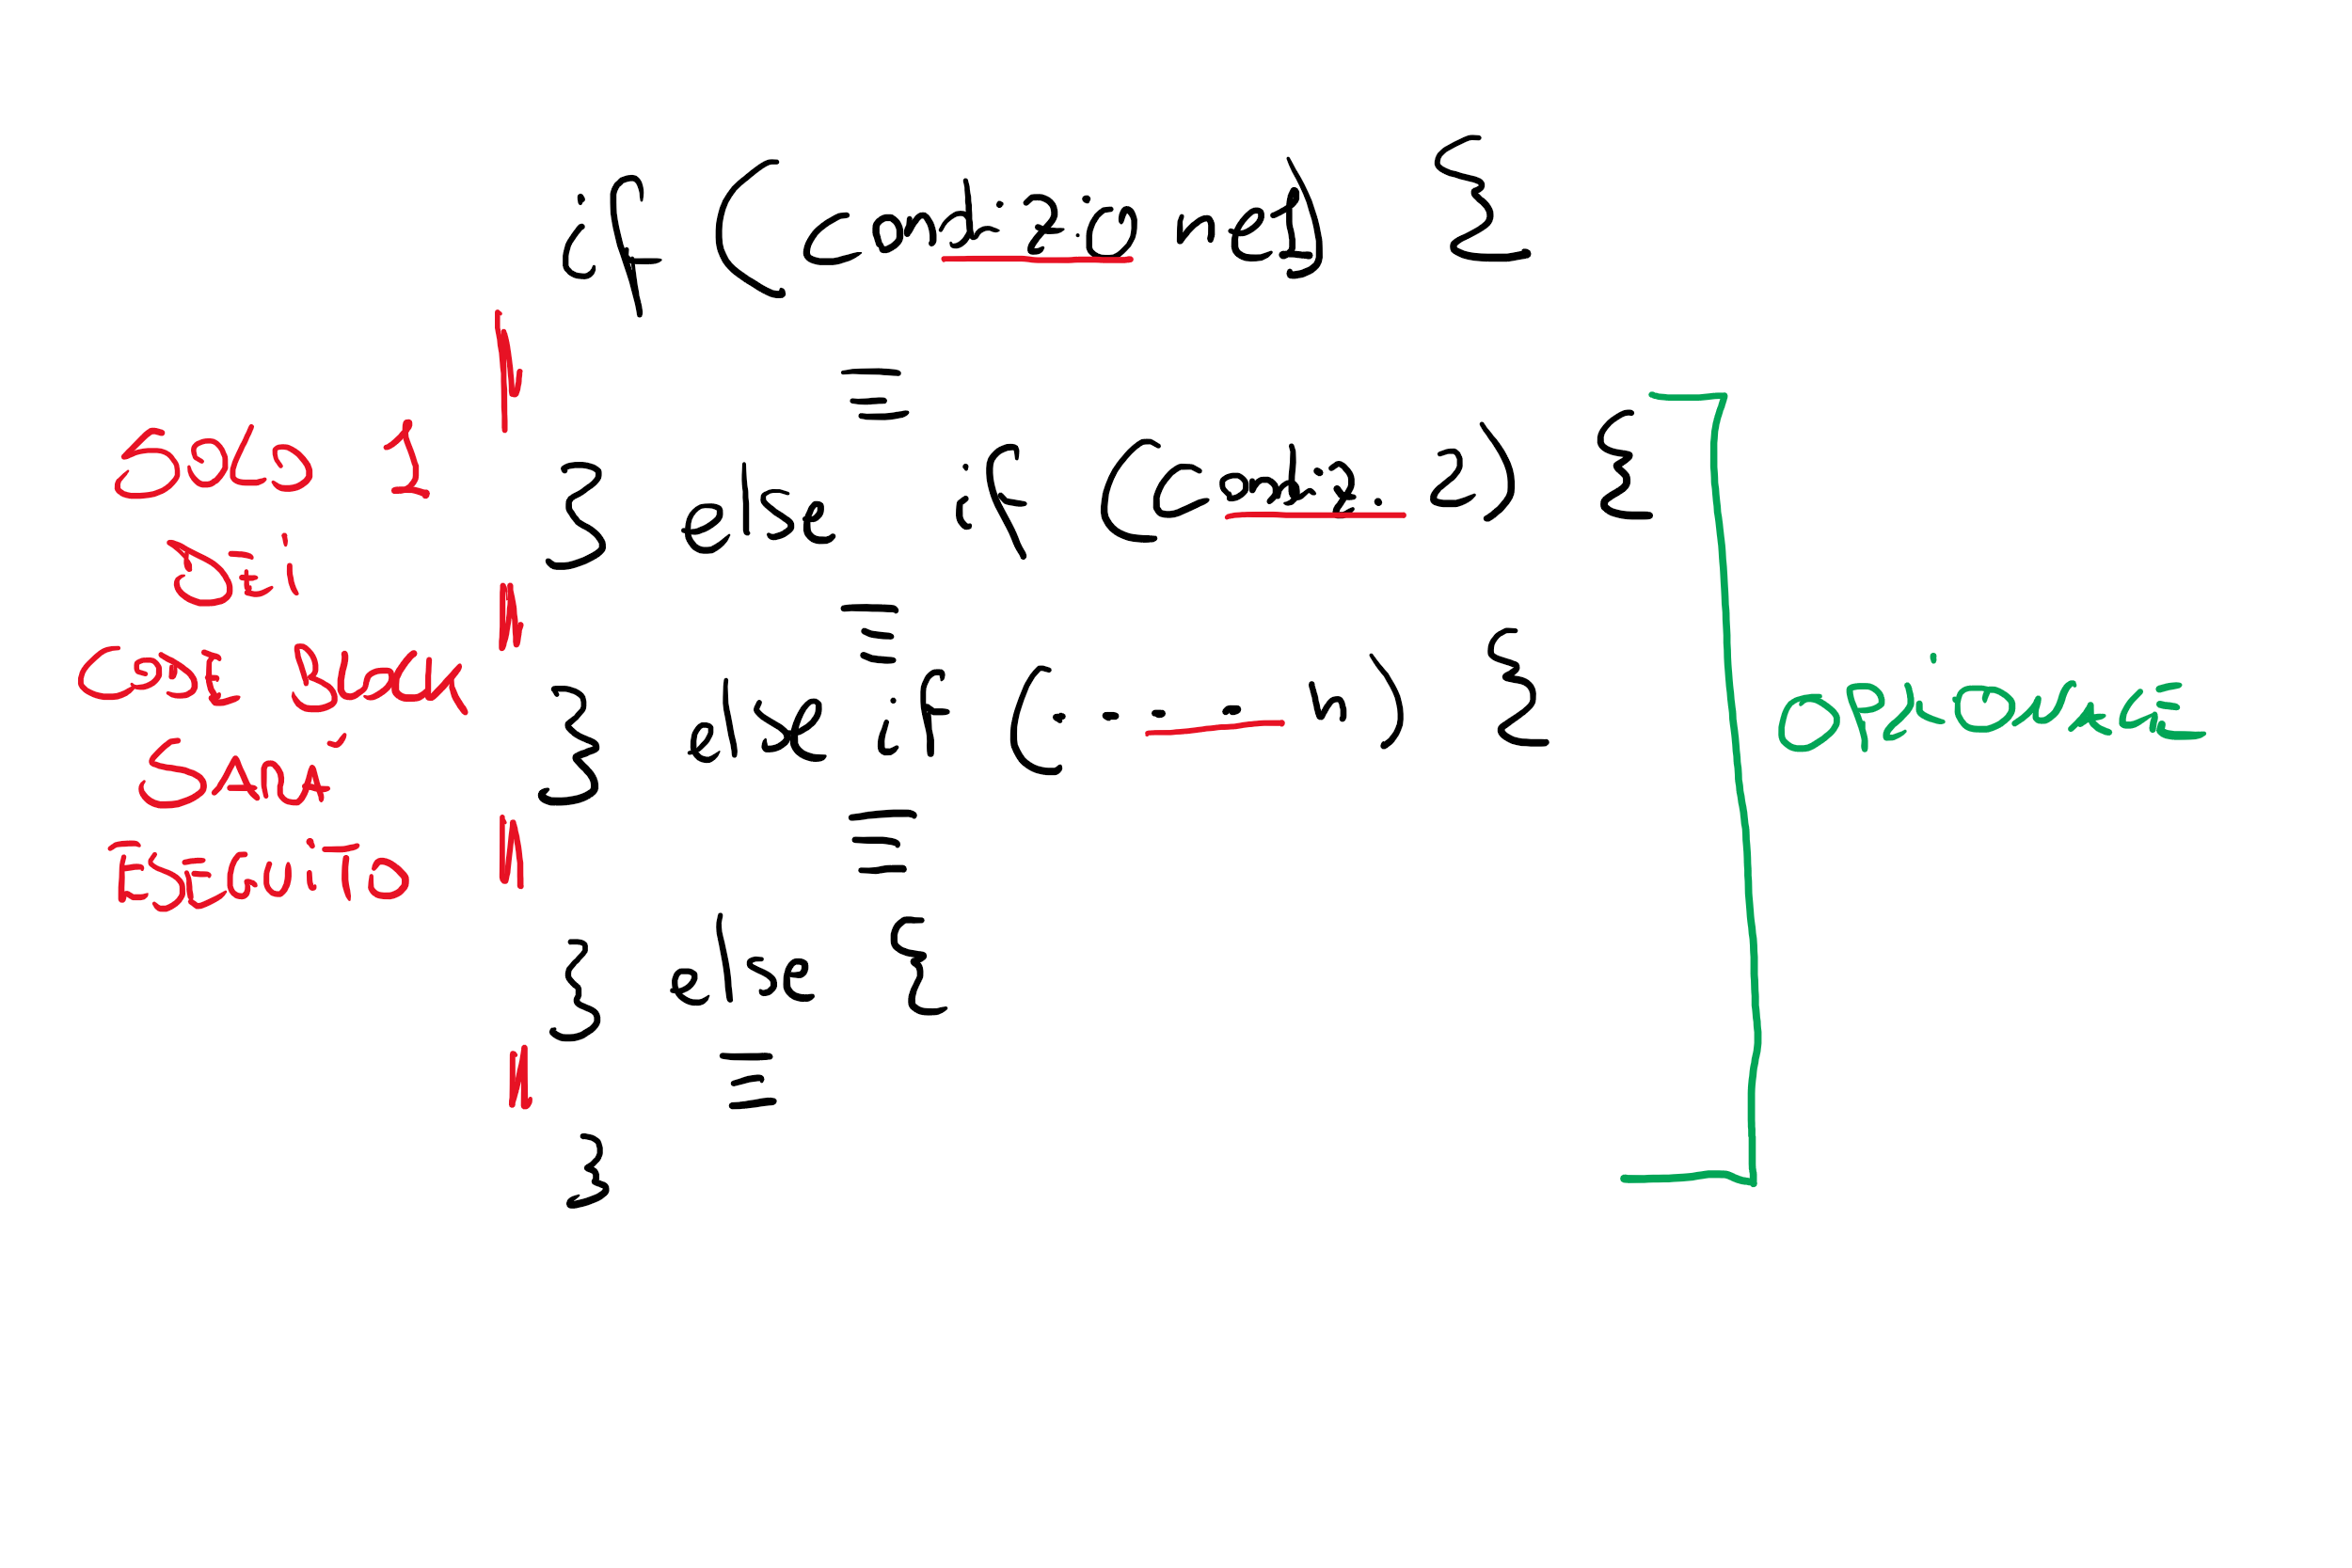 if (condizione1) {
} else if (condiz. 2) {
} else if (- - - - n) {
} else {
}
SOLO 1
DEI
CODE BLOCK
SARÀ
ESEGUITO
OPZIONALE